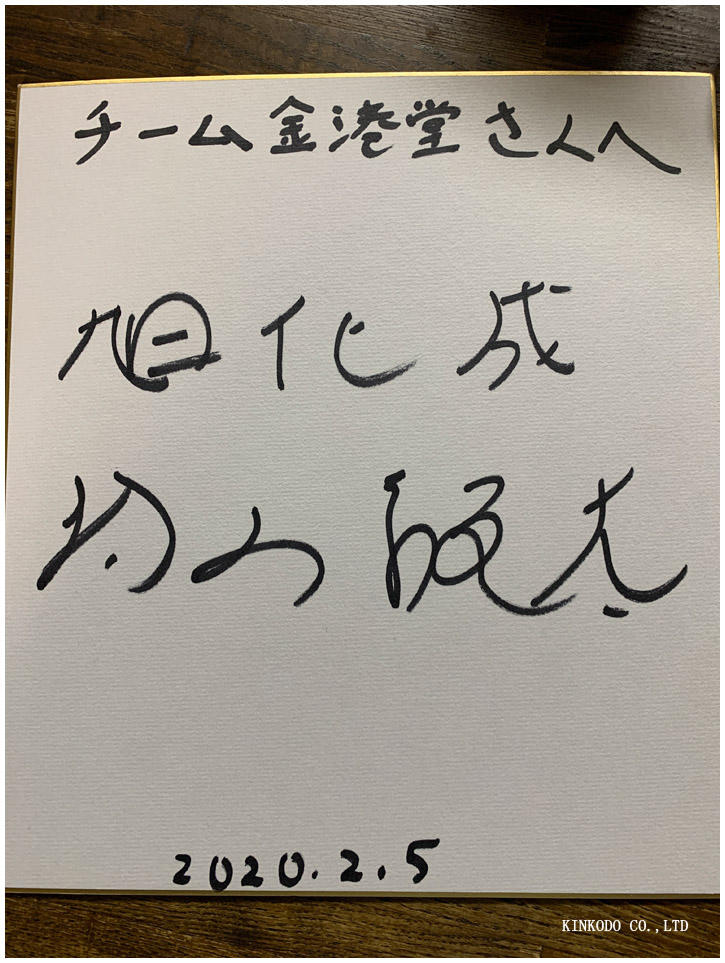 チーム金港堂さんへ
旭化成
村山
2020.2.5
KINKODO CO.,LTD